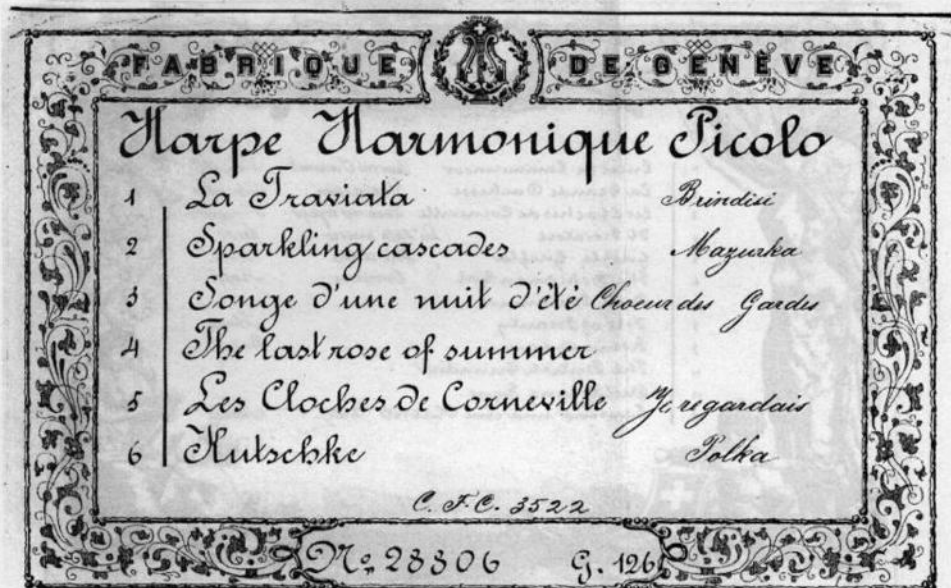 FABRIQUE DE GENÈVE
Harpe Harmonique Picolo
1 La Traviata Brindisi
2 Sparkling cascades Mazurka
3 Songe d'une nuit d'été Choeur des Gardes
4 The last rose of summer
5 Les Cloches de Corneville regardais
6 Kutschke Polka
C. F. C. 3522
No. 28806 G. 126